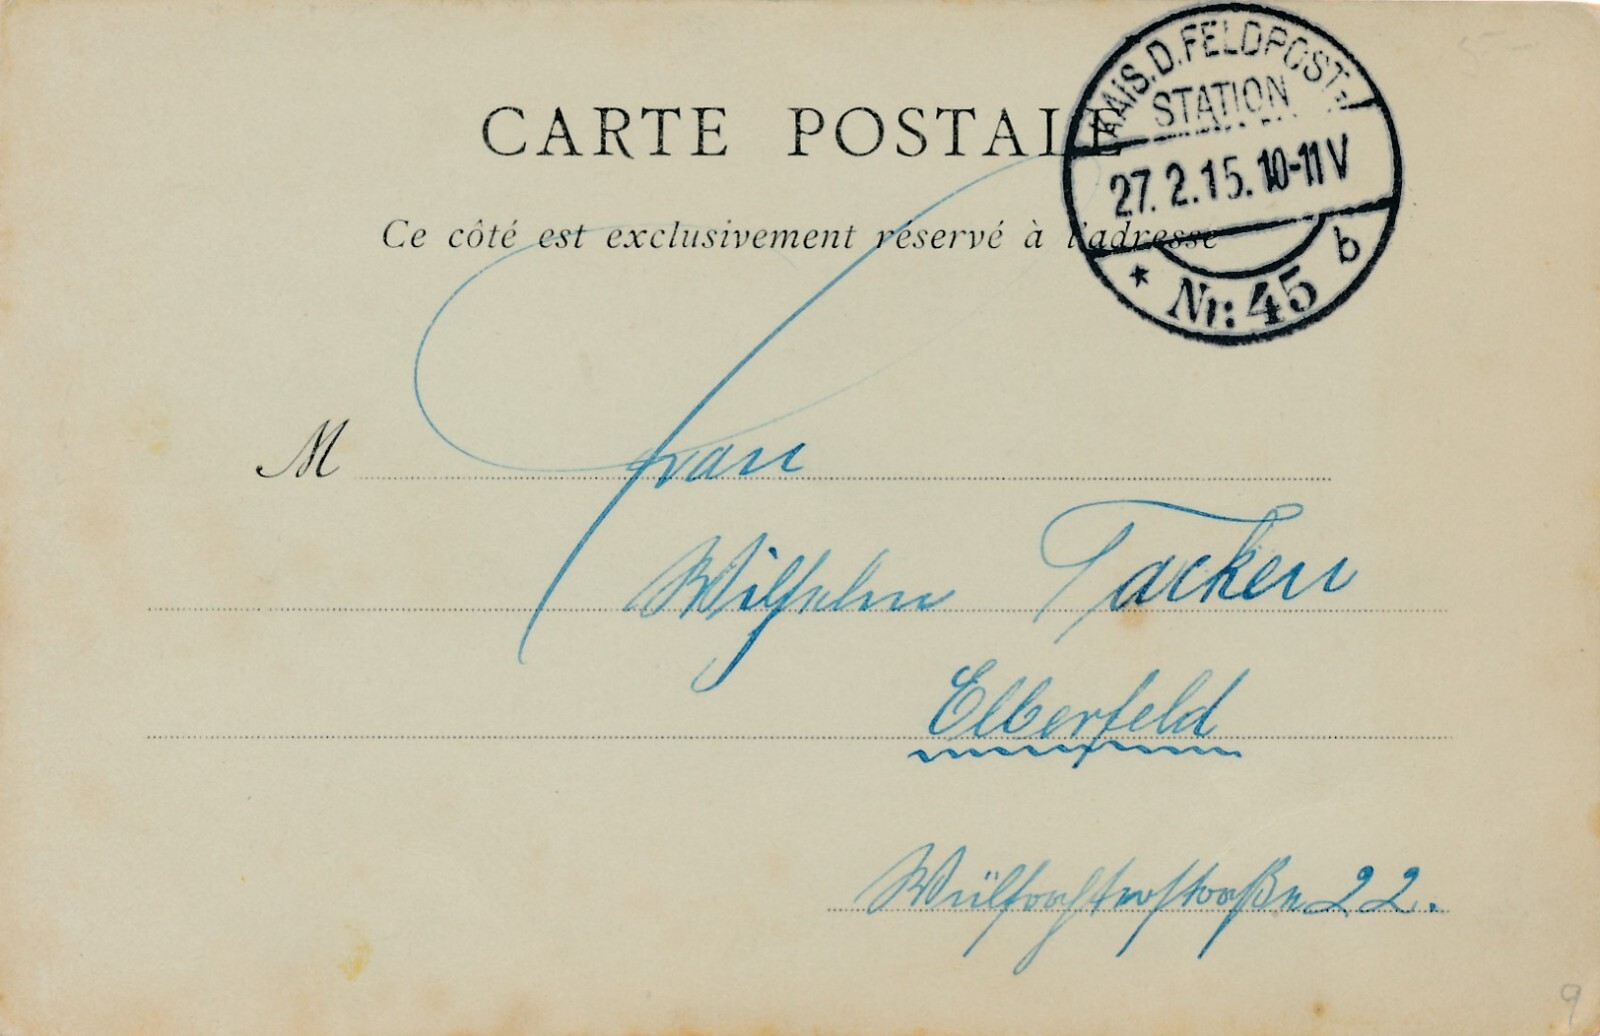 CARTE POSTALE
Ce côté est exclusivement réservé à l'adresse
KAIS.D.FELDPOST-
STATION
27.2.15.10-11V
* Nr:45 b
M Frau
Wilhelm Tacken
Elberfeld
Wülfratherstraße 22.
9